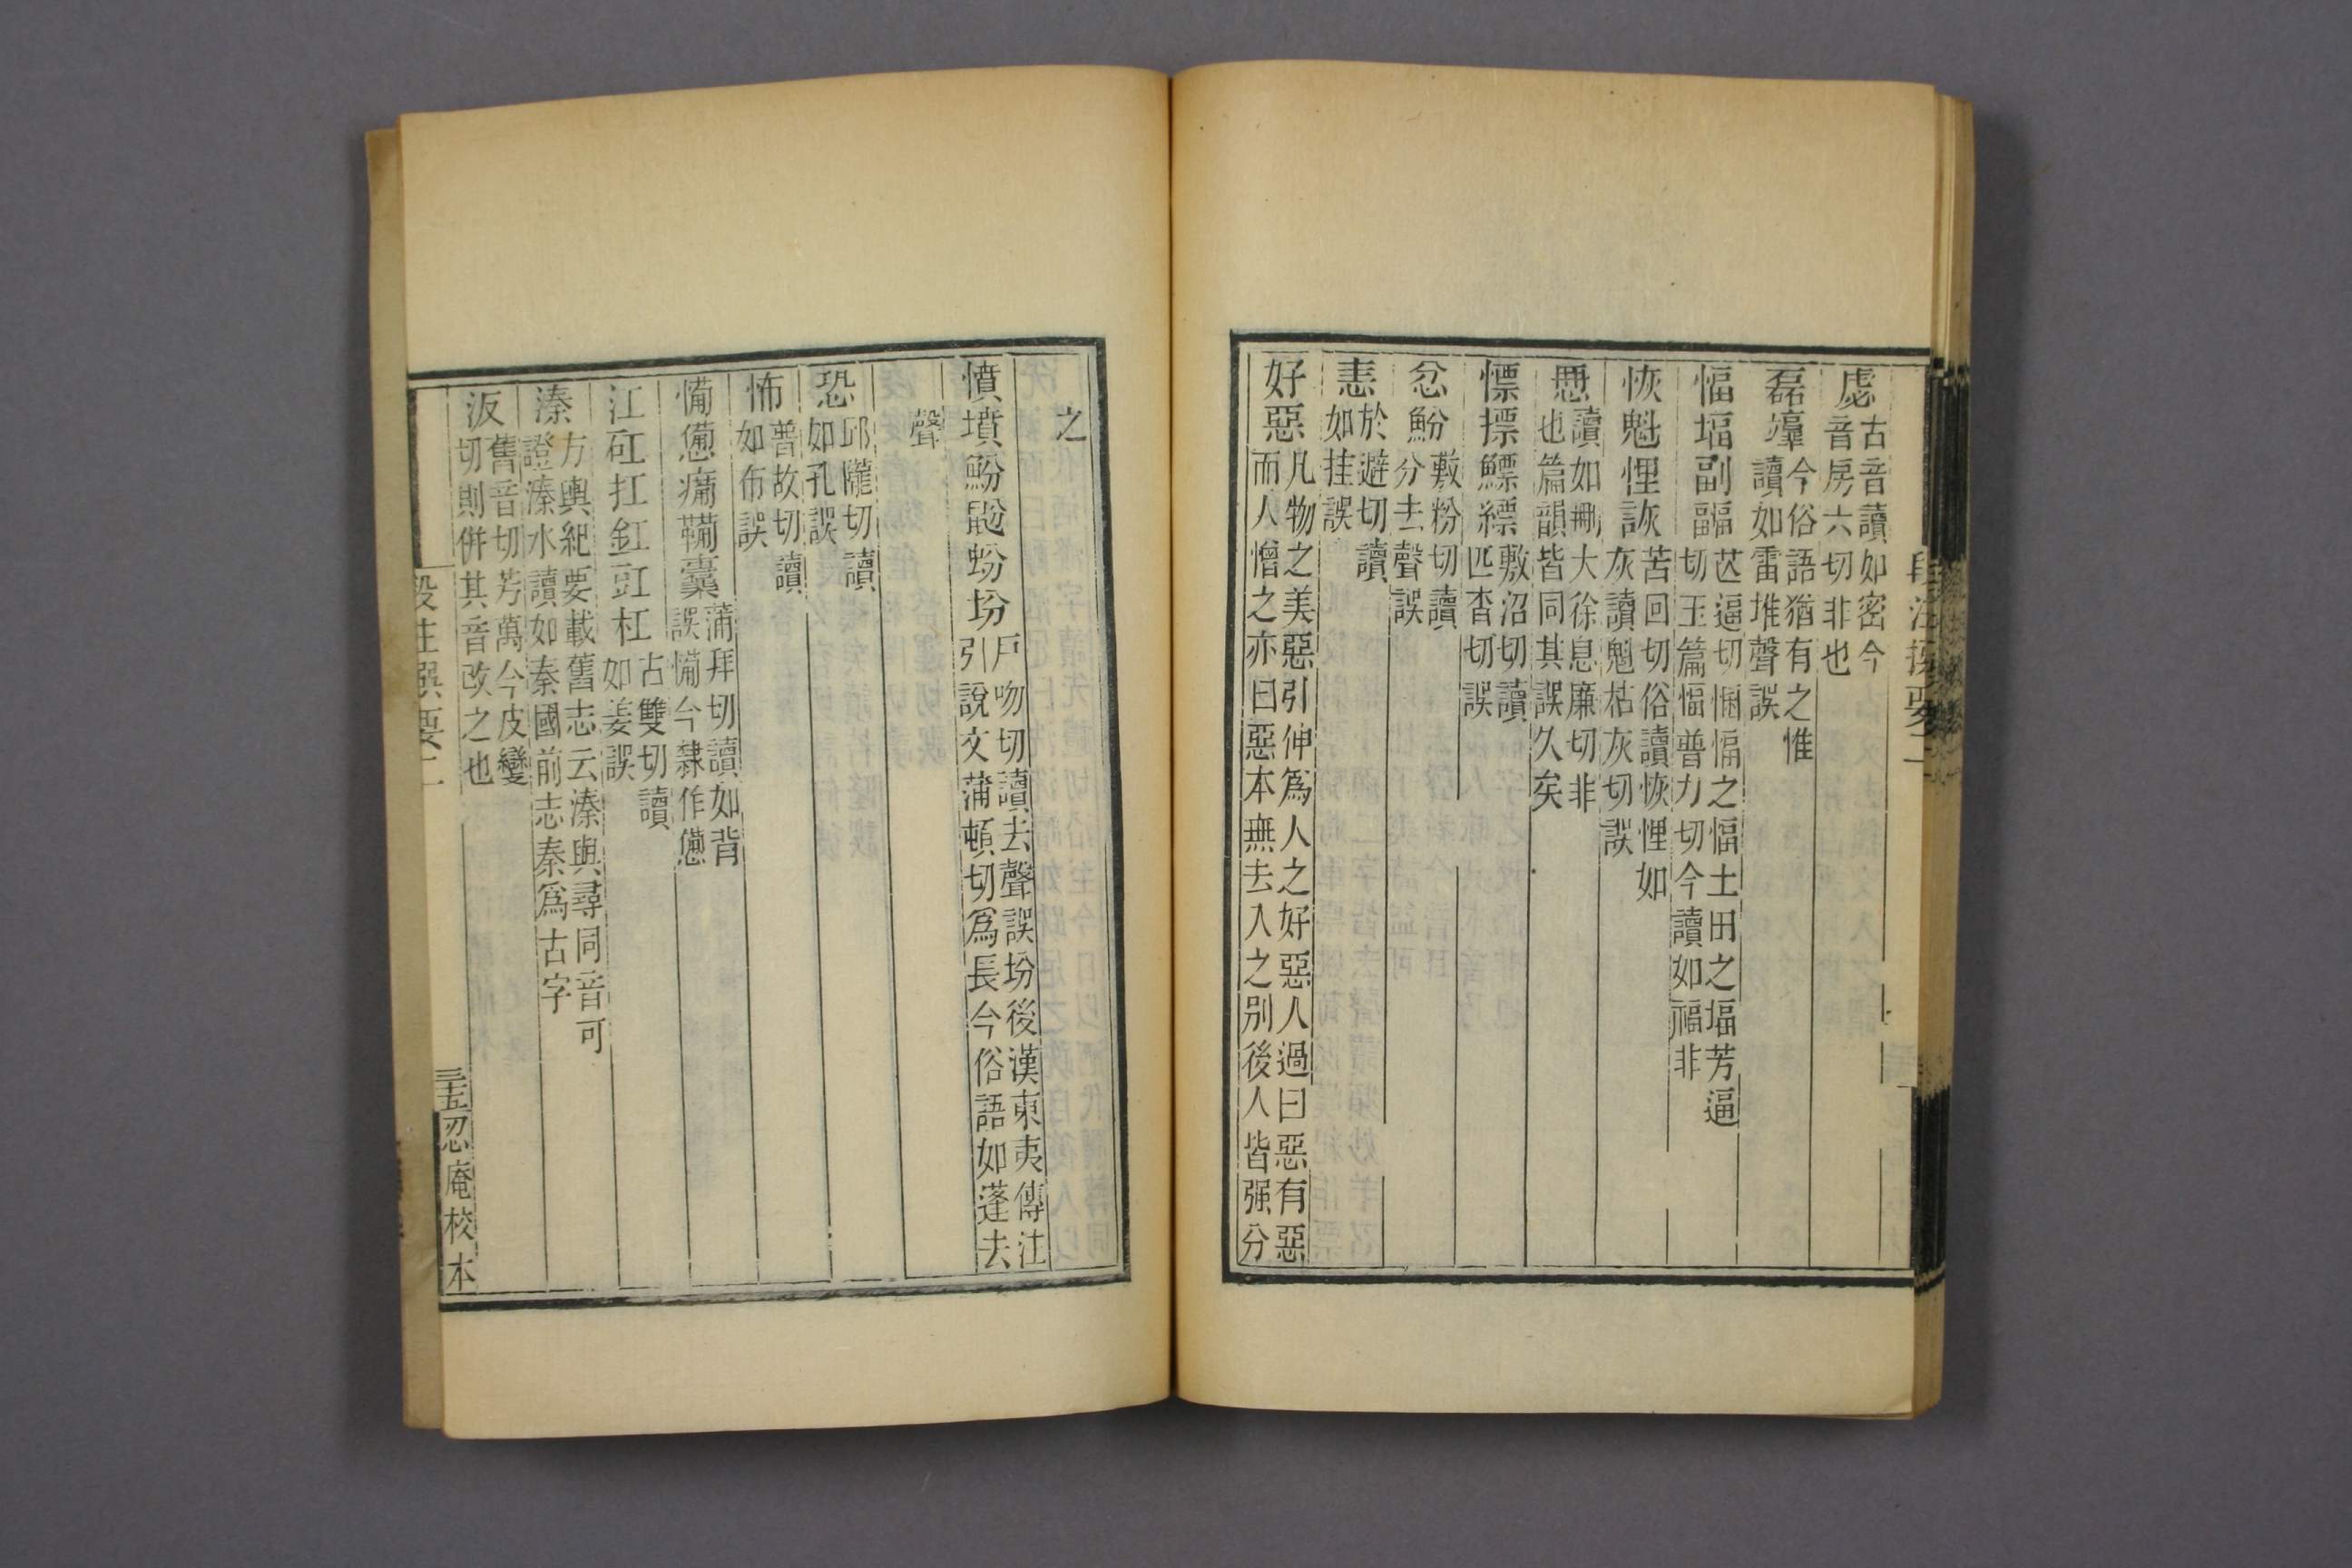 段注撰要二
虙古音讀如密今
音房六切非也
磊㙼今俗語猶有之惟
讀如雷堆聲誤
愊堛副疈芘逼切悃愊之愊土田之堛芳逼
切玉篇愊普力切今讀如福非
恢魁悝詼苦回切俗讀恢悝如
灰讀魁枯灰切誤
思讀如刪大徐息廉切非
也篇韻皆同其誤久矣
慓摽鰾縹敷沼切讀
匹杳切誤
忿魵敷粉切讀
分去聲誤
恚於避切讀
如挂誤
好惡凡物之美惡引伸爲人之好惡人過曰惡有惡
而人憎之亦曰惡本無去入之别後人皆强分
之
憤墳魵鼢蚡坋戶吻切讀去聲誤坋後漢東夷傳注
引說文蒲頓切爲長今俗語如蓬去
聲
恐邱隴切讀
如孔誤
怖普故切讀
如布誤
𢤥憊㾱韛橐蒲拜切讀如背
誤𢤥今隸作憊
江矼扛釭豇杠古雙切讀
如姜誤
溱方輿紀要載舊志云溱與尋同音可
證溱水讀如秦國前志秦爲古字
汳舊音切芳萬今皮變
切則併其音改之也
段注撰要二
三五
忍庵校本